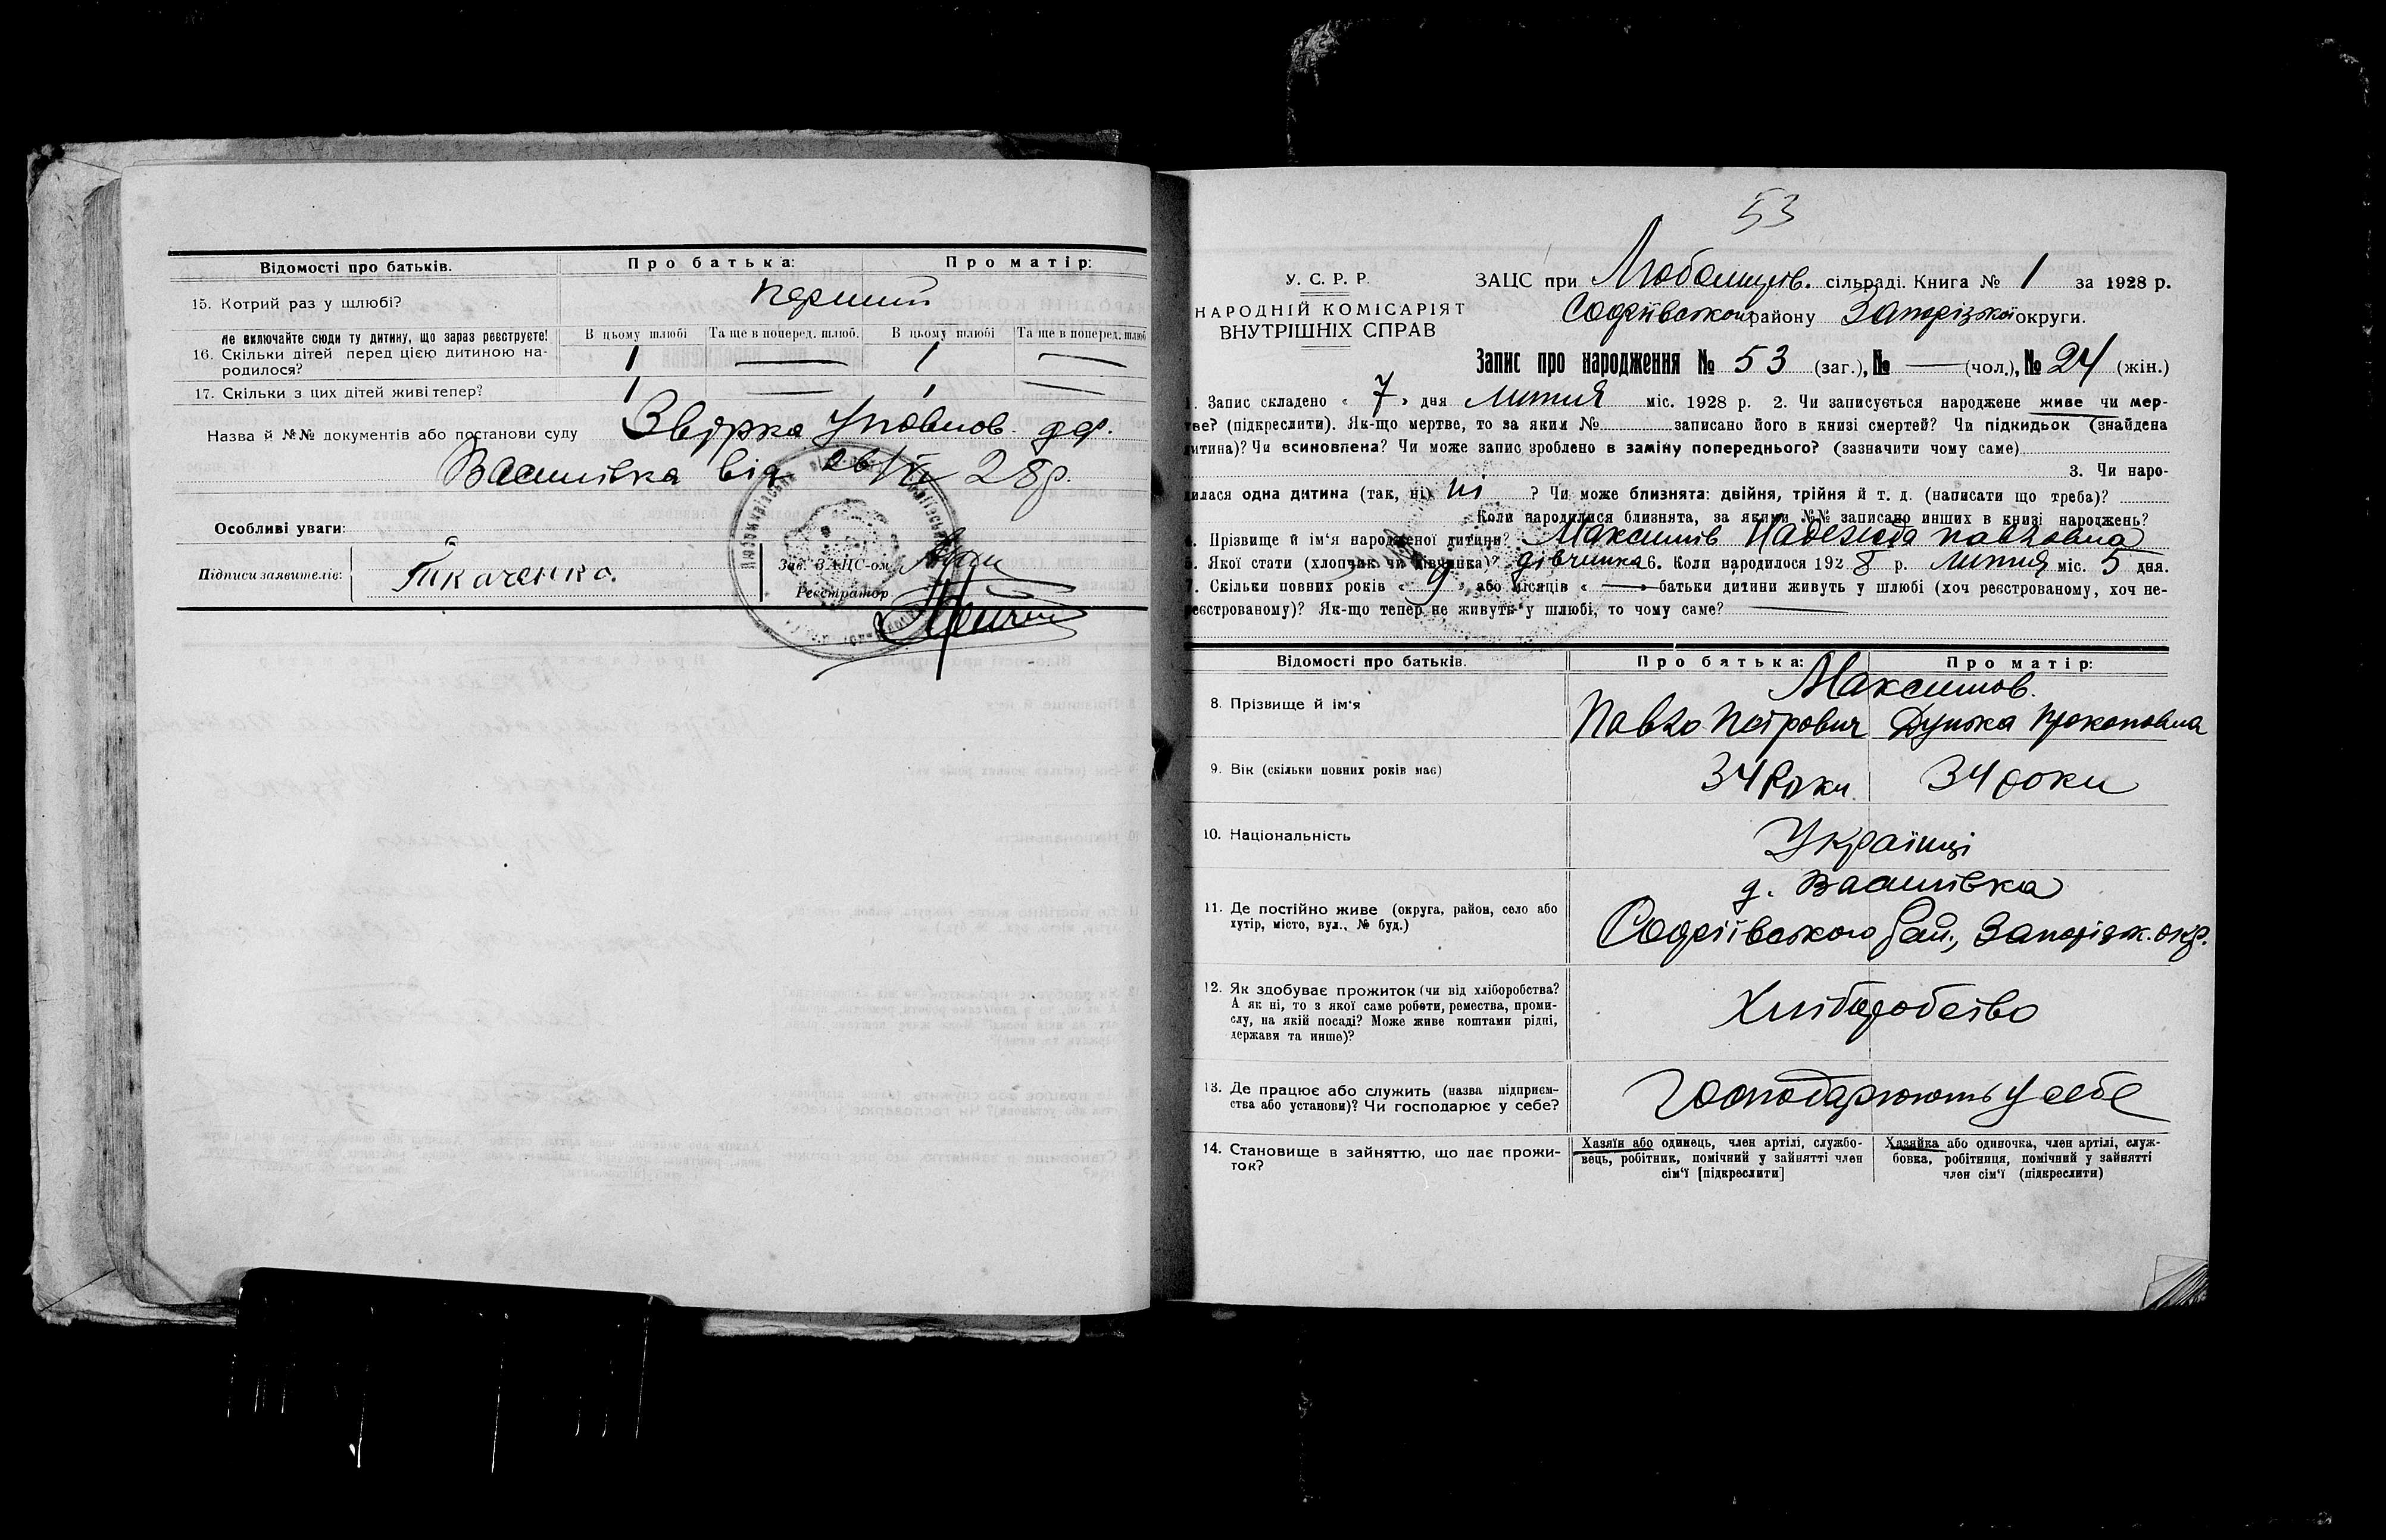 Відомості про батьків. Про батька: Про матір:
15. Котрий раз у шлюбі? перший
Не включайте сюди ту дитину, що зараз реєструєте! В цьому шлюбі Та ще в поперед. шлюб. В цьому шлюбі Та ще в поперед. шлюб
16. Скільки дітей перед цією дитиною на- 1 — 1 —
родилося?
17. Скільки з цих дітей живі тепер? 1 — 1 —
Назва й №№ документів або постанови суду Звірка Уповнов.
Василівка від 28р.
Особливі уваги:
Підписи заявителів: Ткаченко. Зав. ЗАЦС-ом
Реєстратор
53
У. С. Р. Р.
НАРОДНІЙ КОМІСАРІЯТ
ВНУТРІШНІХ СПРАВ
ЗАЦС при сільраді. Книга № 1 за 1928 р.
Софіївськом району Запорізької округи.
Запис про народження № 53 (заг.), № — (чол.), № 24 (жін.)
1. Запис складено « 7 » дня Липня міс. 1928 р. 2. Чи записується народжене живе чи мер-
тве? (підкреслити). Як-що мертве, то за яким № записано його в книзі смертей? Чи підкидьок (знайдена
дитина)? Чи всиновлена? Чи може запис зроблено в заміну попереднього? (зазначити чому саме)
3. Чи наро-
дилася одна дитина (так, ні) ні ? Чи може близнята: двійня, трійня й т. д. (написати що треба)?
Коли народилися близнята, за якими №№ записано инших в книзі народжень?
4. Прізвище й ім'я народженої дитини? Максимів Надежда Павловна
5. Якої стати (хлопчик чи дівчинка)? дівчинка 6. Коли народилося 1928 р. Липня міс. 5 дня.
7. Скільки повних років « 9 » або місяців « — » батьки дитини живуть у шлюбі (хоч реєстрованому, хоч не-
реєстрованому)? Як-що тепер не живуть у шлюбі, то чому саме? —
Відомості про батьків. Про батька: Про матір:
Максимов.
8. Прізвище й ім'я Павло Петрович Дунька Прокоповна
9. Вік (скільки повних років має) 34 Роки 34 роки
10. Національність Українці
д. Василівка
11. Де постійно живе (округа, район, село або
хутір, місто, вул., № буд.) Софіївського Рай., Запоріжж. окр.
12. Як здобуває прожиток (чи від хліборобства?
А як ні, то з якої саме роботи, ремества, проми- Хліборобство
слу, на якій посаді? Може живе коштами рідні,
держави та инше)?
13. Де працює або служить (назва підприєм-
ства або установи)? Чи господарює у себе? господарюють у себе
14. Становище в зайняттю, що дає прожи-
ток?
Хазяїн або одинець, член артілі, службо-
вець, робітник, помічний у зайнятті член
сім'ї [підкреслити]
Хазяйка або одиночка, член артілі, служ-
бовка, робітниця, помічний у зайнятті
член сім'ї (підкреслити)